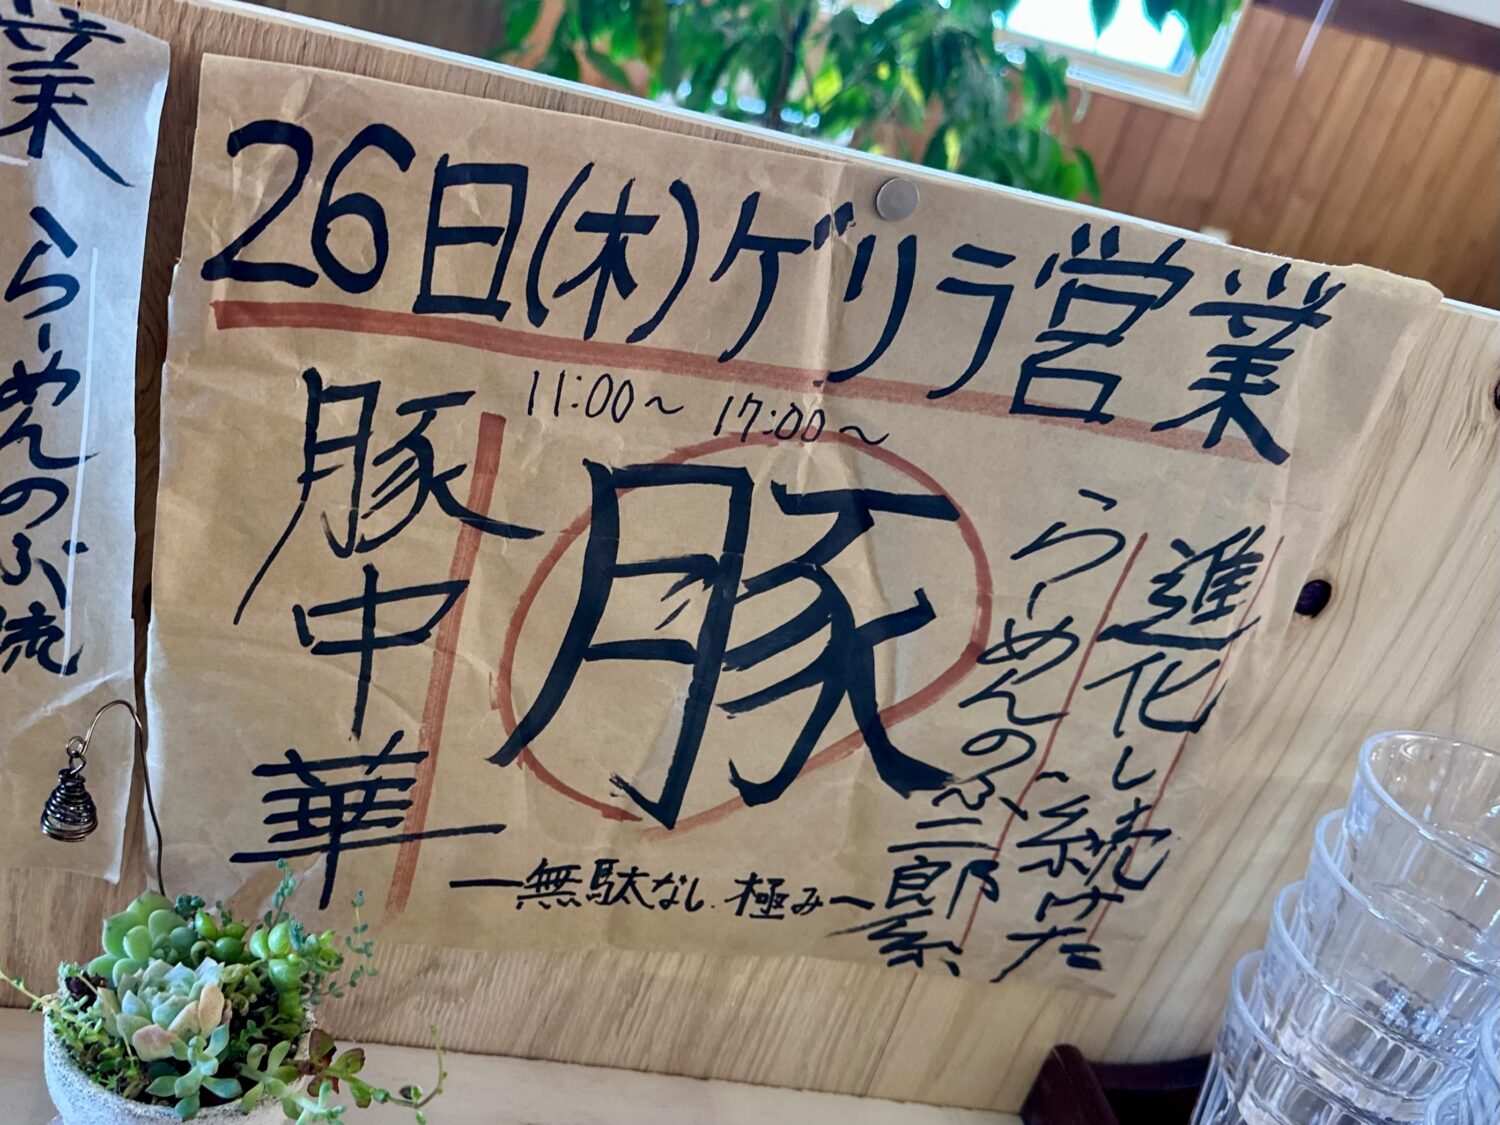 26日(木)ゲリラ営業
11:00～ 17:00～
進化し続けた
らーめんのぶ二郎系
豚
豚中華
ー無駄なし.極みー
業 らーめんのぶ